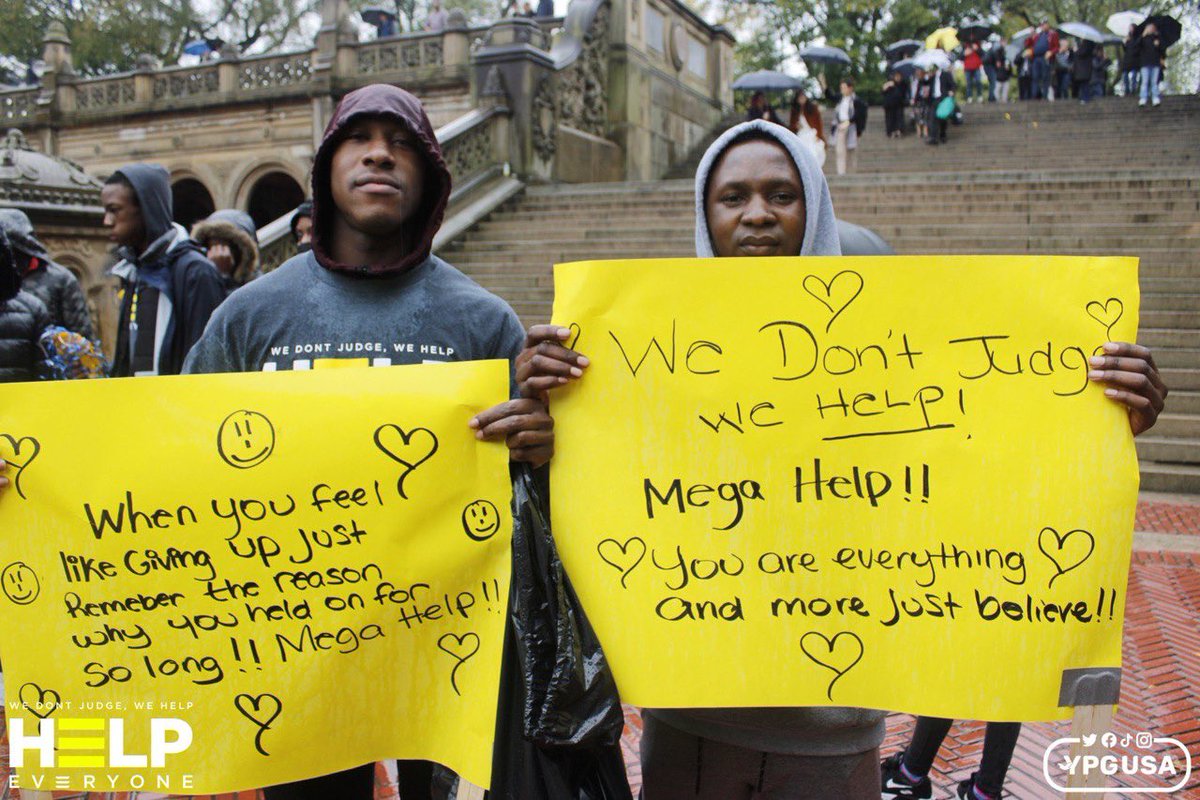 WE DONT JUDGE, WE HELP
When you feel
like Giving up Just
Remeber the reason
why you held on for
so long!! Mega Help!!
We Don't Judg
we HELP!
Mega Help!!
You are everything
and more just believe!!
WE DONT JUDGE, WE HELP
HELP
EVERYONE
YPGUSA